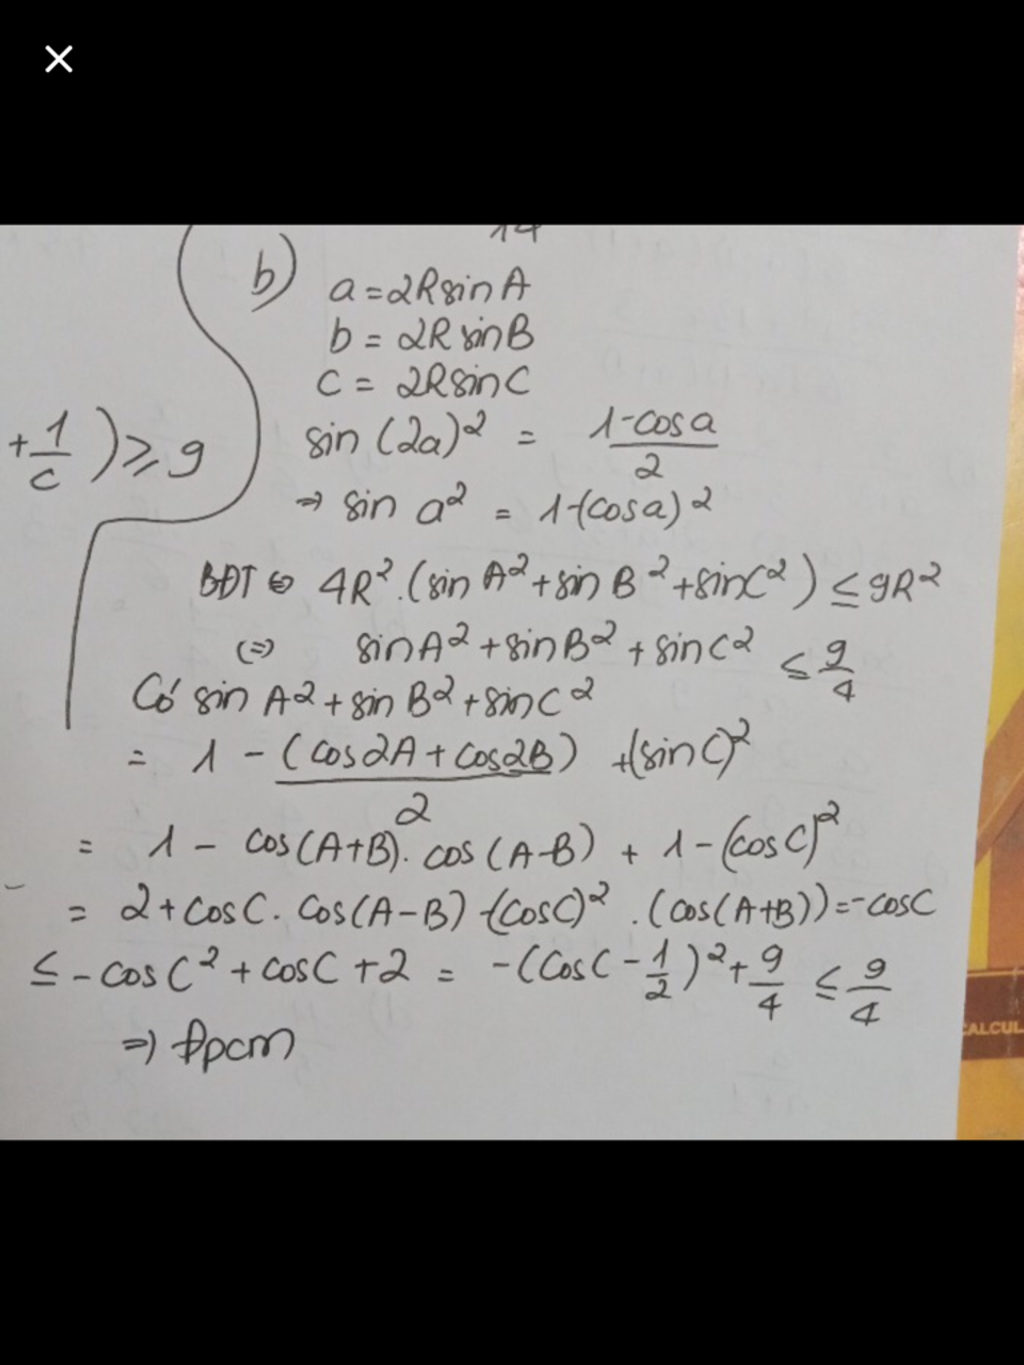 14
b)
a = 2R sin A
b = 2R sin B
c = 2R sin C
+ 1/c ) ≥ 9
sin (2a)² = (1 - cos a)/2
⇒ sin a² = 1 - (cos a)²
BĐT ⇔ 4R² . (sin A² + sin B² + sin C²) ≤ 9R²
(=) sin A² + sin B² + sin C² ≤ 9/4
Có sin A² + sin B² + sin C²
= 1 - (cos 2A + cos 2B)/2 + (sin C)²
= 1 - cos (A+B) . cos (A-B) + 1 - (cos C)²
= 2 + cos C . cos (A-B) - (cos C)² . (cos (A+B)) = - cos C
≤ - cos C² + cos C + 2 = - (cos C - 1/2)² + 9/4 ≤ 9/4
⇒ Đpcm
ALCUL